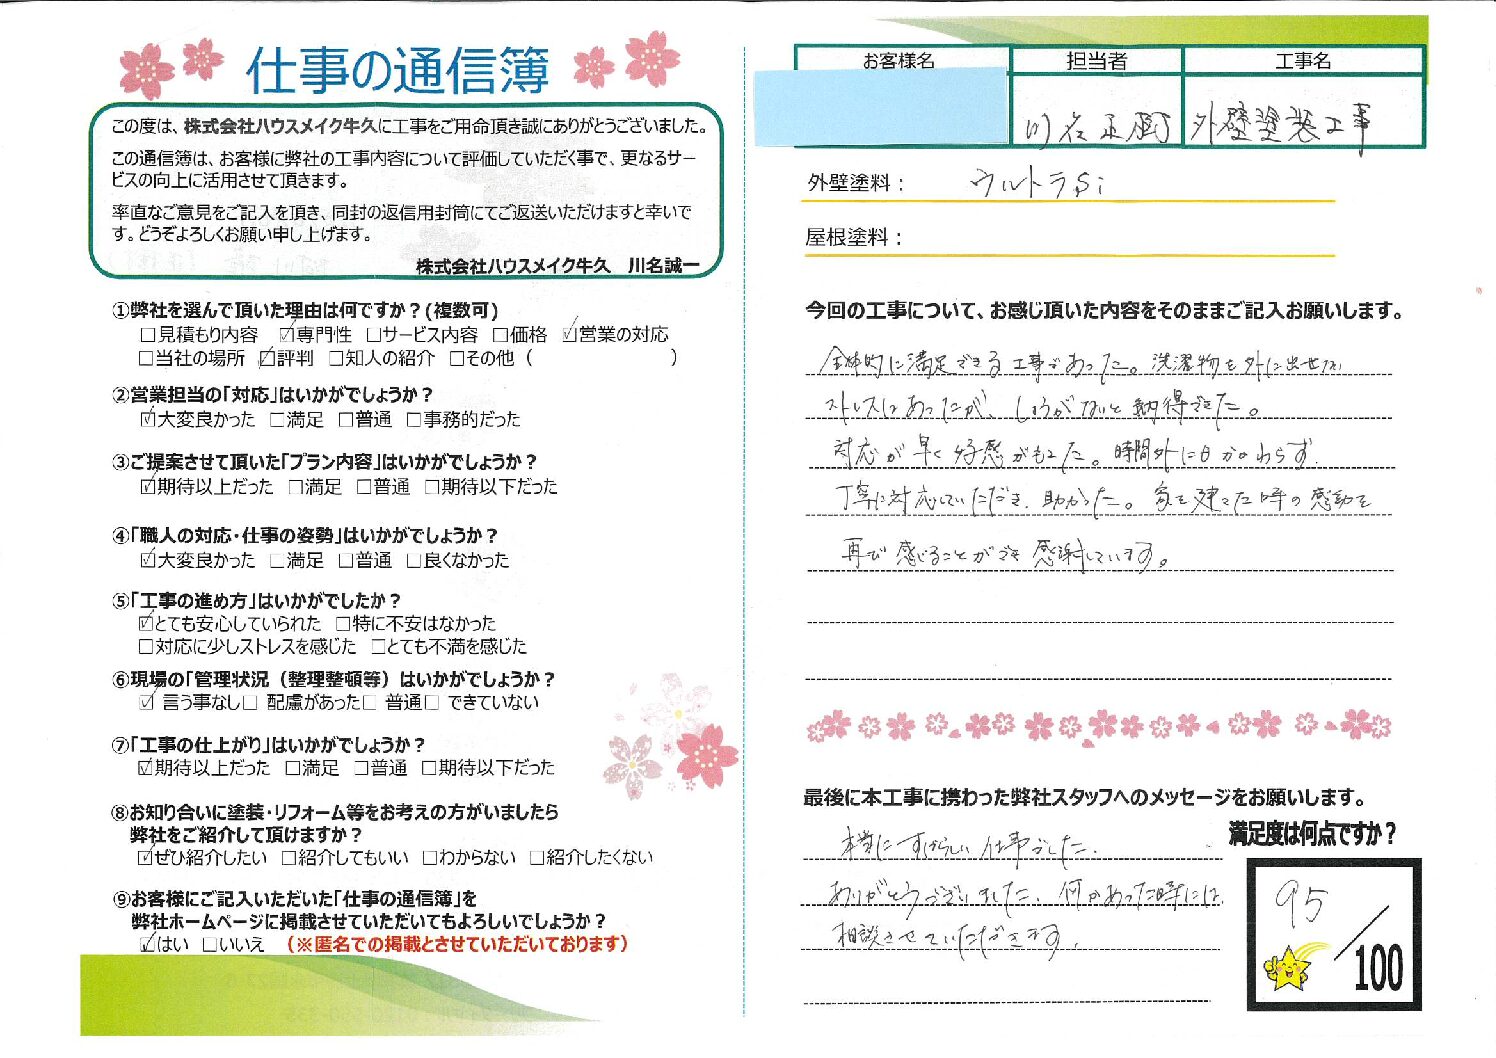 仕事の通信簿
この度は、株式会社ハウスメイク牛久に工事をご用命頂き誠にありがとうございました。
この通信簿は、お客様に弊社の工事内容について評価していただく事で、更なるサー
ビスの向上に活用させて頂きます。
率直なご意見をご記入を頂き、同封の返信用封筒にてご返送いただけますと幸いで
す。どうぞよろしくお願い申し上げます。
株式会社ハウスメイク牛久　川名誠一
①弊社を選んで頂いた理由は何ですか？(複数可)
□見積もり内容 ☑専門性 □サービス内容 □価格 ☑営業の対応
□当社の場所 ☑評判 □知人の紹介 □その他（　　　　　　　）
②営業担当の「対応」はいかがでしょうか？
☑大変良かった □満足 □普通 □事務的だった
③ご提案させて頂いた「プラン内容」はいかがでしょうか？
☑期待以上だった □満足 □普通 □期待以下だった
④「職人の対応・仕事の姿勢」はいかがでしょうか？
☑大変良かった □満足 □普通 □良くなかった
⑤「工事の進め方」はいかがでしたか？
☑とても安心していられた □特に不安はなかった
□対応に少しストレスを感じた □とても不満を感じた
⑥現場の「管理状況（整理整頓等）はいかがでしょうか？
☑ 言う事なし□ 配慮があった□ 普通□ できていない
⑦「工事の仕上がり」はいかがでしょうか？
☑期待以上だった □満足 □普通 □期待以下だった
⑧お知り合いに塗装・リフォーム等をお考えの方がいましたら
弊社をご紹介して頂けますか？
☑ぜひ紹介したい □紹介してもいい □わからない □紹介したくない
⑨お客様にご記入いただいた「仕事の通信簿」を
弊社ホームページに掲載させていただいてもよろしいでしょうか？
☑はい □いいえ （※匿名での掲載とさせていただいております）
お客様名 担当者 工事名
川名正 外壁塗装工事
外壁塗料： ウルトラSi
屋根塗料：
今回の工事について、お感じ頂いた内容をそのままご記入お願いします。
全体的に満足できる工事であった。洗濯物を外に出せない
ストレスはあったが、しょうがないと納得できた。
対応が早く好感がもてた。時間外にもかかわらず、
丁寧に対応していただき、助かった。家を建てた時の感動を
再び感じることができ感謝しています。
最後に本工事に携わった弊社スタッフへのメッセージをお願いします。
満足度は何点ですか？
本当にすばらしい仕事でした。
ありがとうございました。何かあった時には
相談させていただきます。
95／100